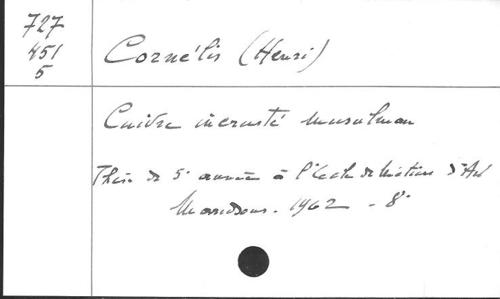 727
451
5
Cornélis (Henri)
Cuivre incrusté musulman
Thèse de 5e année à l'Ecole de l'histoire d'Art
1962 - 8°